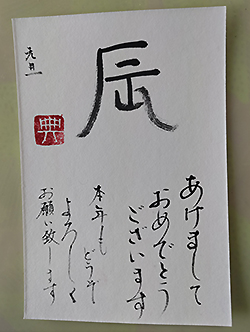 辰
あけまして
おめでとう
ございます
本年も
どうぞ
よろしく
お願い致します
元旦
典